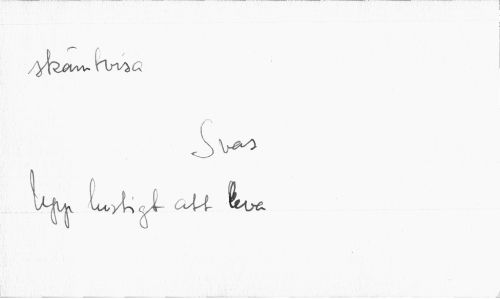 skämtvisa
Svas
Upp lustigt att leva